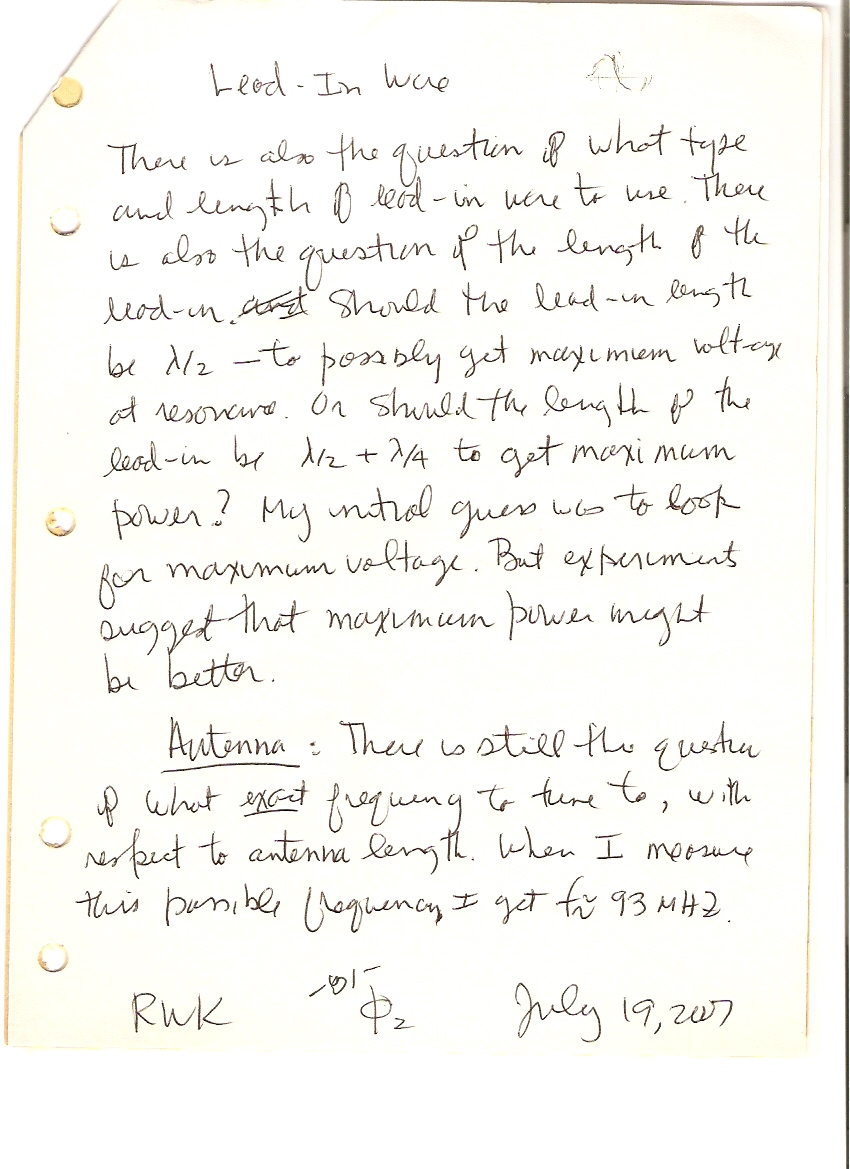 Lead-In Wire
There is also the question of what type
and length of lead-in wire to use. There
is also the question of the length of the
lead-in. and Should the lead-in length
be λ/2 – to possibly get maximum voltage
at resonance. Or should the length of the
lead-in be λ/2 + λ/4 to get maximum
power? My initial guess was to look
for maximum voltage. But experiments
suggest that maximum power might
be better.
Antenna : There is still the question
of what exact frequency to tune to, with
respect to antenna length. When I measure
this possible frequency, I get f≈ 93 MHZ.
RWK Φ2 July 19, 2007